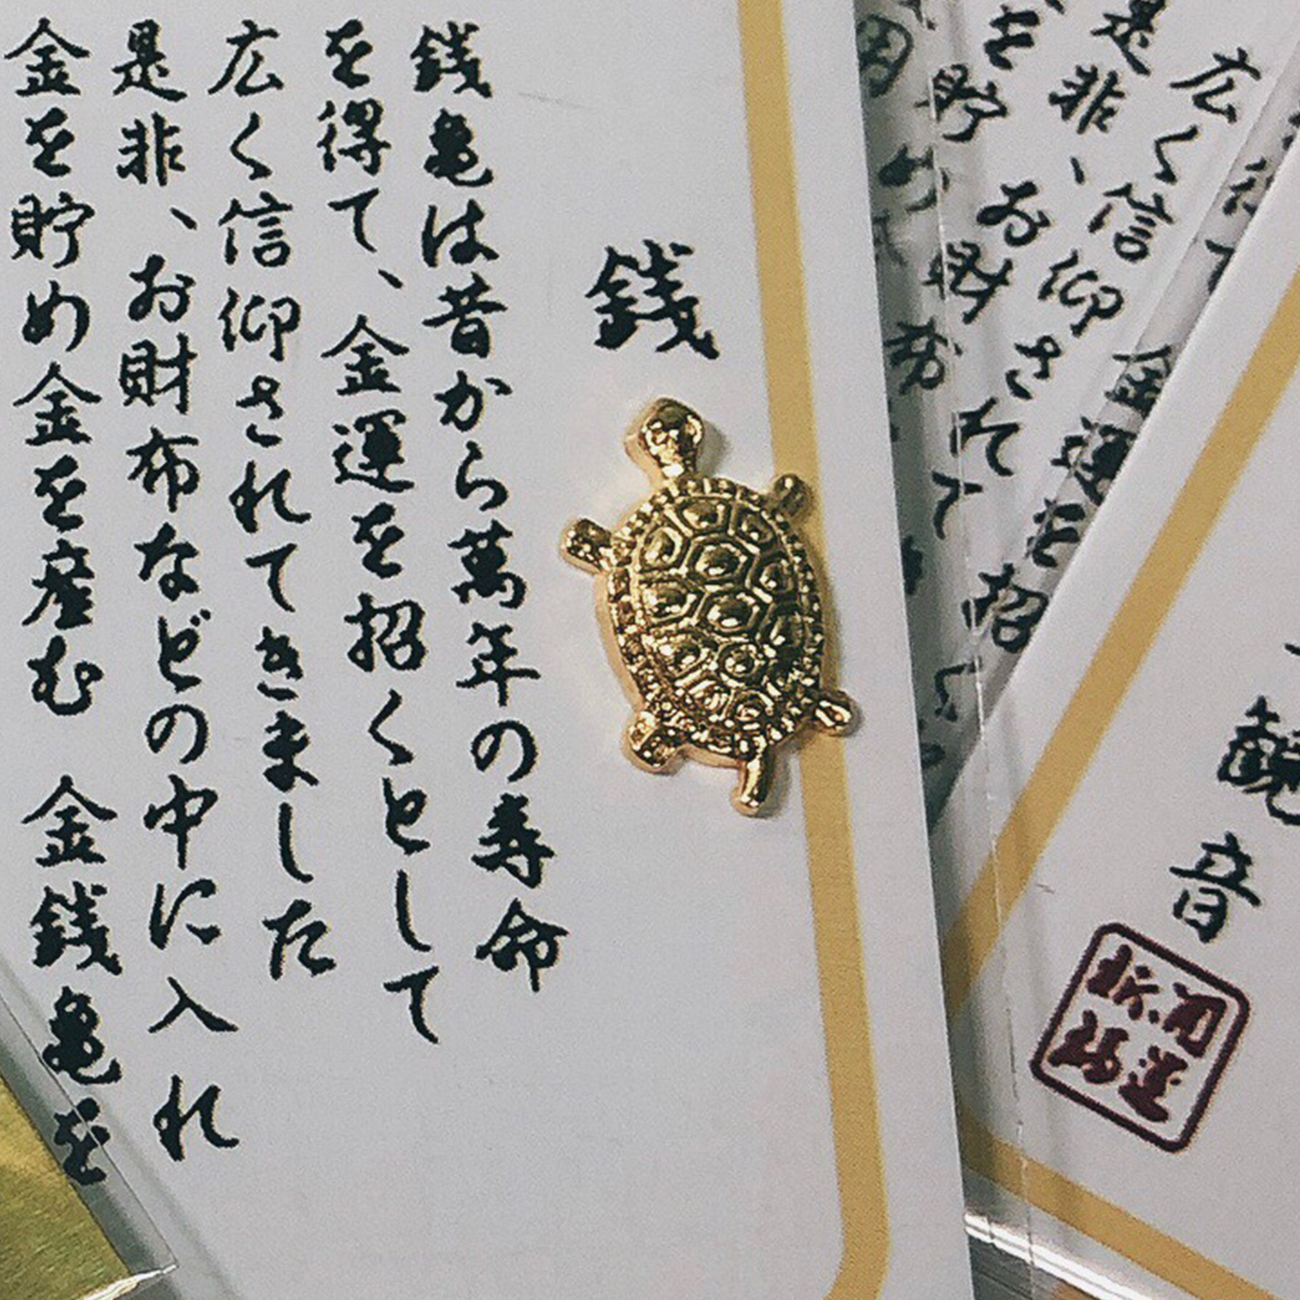 銭
銭亀は昔から萬年の寿命
を得て、金運を招くとして
広く信仰されてきました
是非、お財布などの中に入れ
金を貯め金を産む 金銭亀を
広く信仰されて
是非、お財布
を貯め
を招く
観音
開運
招福